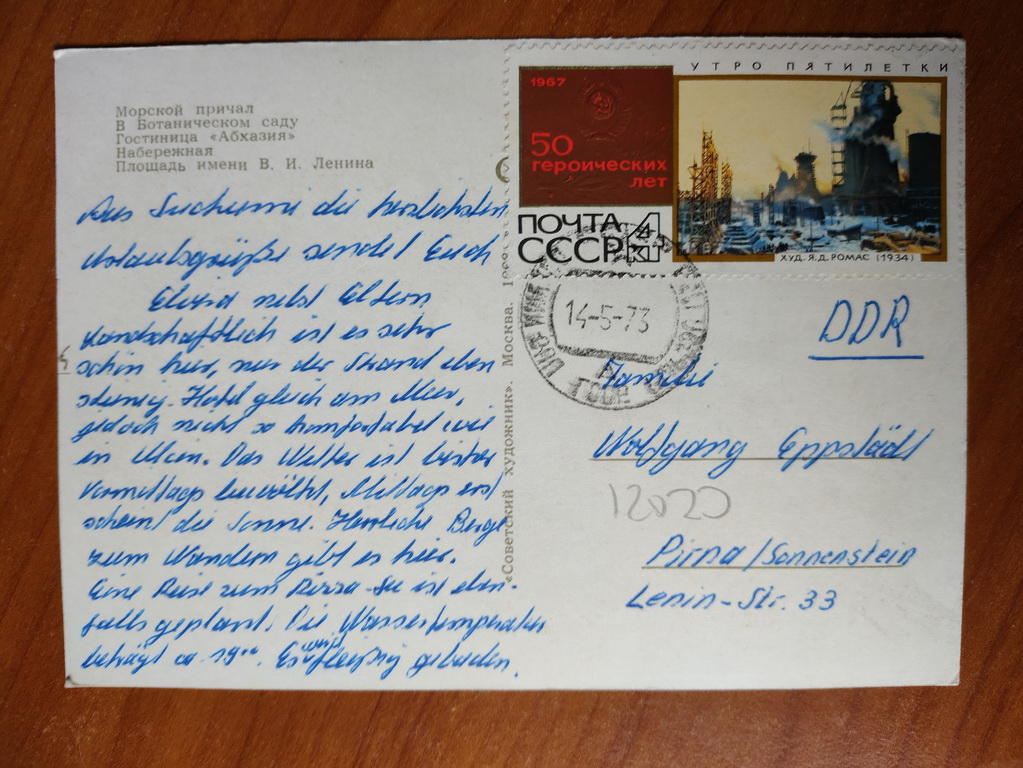 Морской причал
В Ботаническом саду
Гостиница «Абхазия»
Набережная
Площадь имени В. И. Ленина
Aus Suchumi die herzlichsten
Urlaubsgrüße sendet Euch
nebst Eltern
Landschaftlich ist es sehr
schön hier, nur der Strand eben
steinig. Hotel gleich am Meer,
jedoch nicht so komfortabel wie
in . Das Wetter ist bisher
Vormittags bewölkt, Mittags erst
scheint die Sonne. Herrliche Berge
zum Wandern gibt es hier.
Eine Reise zum Rizza-See ist eben-
falls geplant. Die Wassertemperatur
beträgt ca. 19°. Es wird fleißig gebaden.
«Советский художник». Москва.
УТРО ПЯТИЛЕТКИ
1967
50
героических
лет
ПОЧТА
СССР
4
К
ХУД. Я.Д. РОМАС (1934)
14-5-73
DDR
Familie
Wolfgang Eppstädt
12020
Pirna/Sonnenstein
Lenin-Str. 33